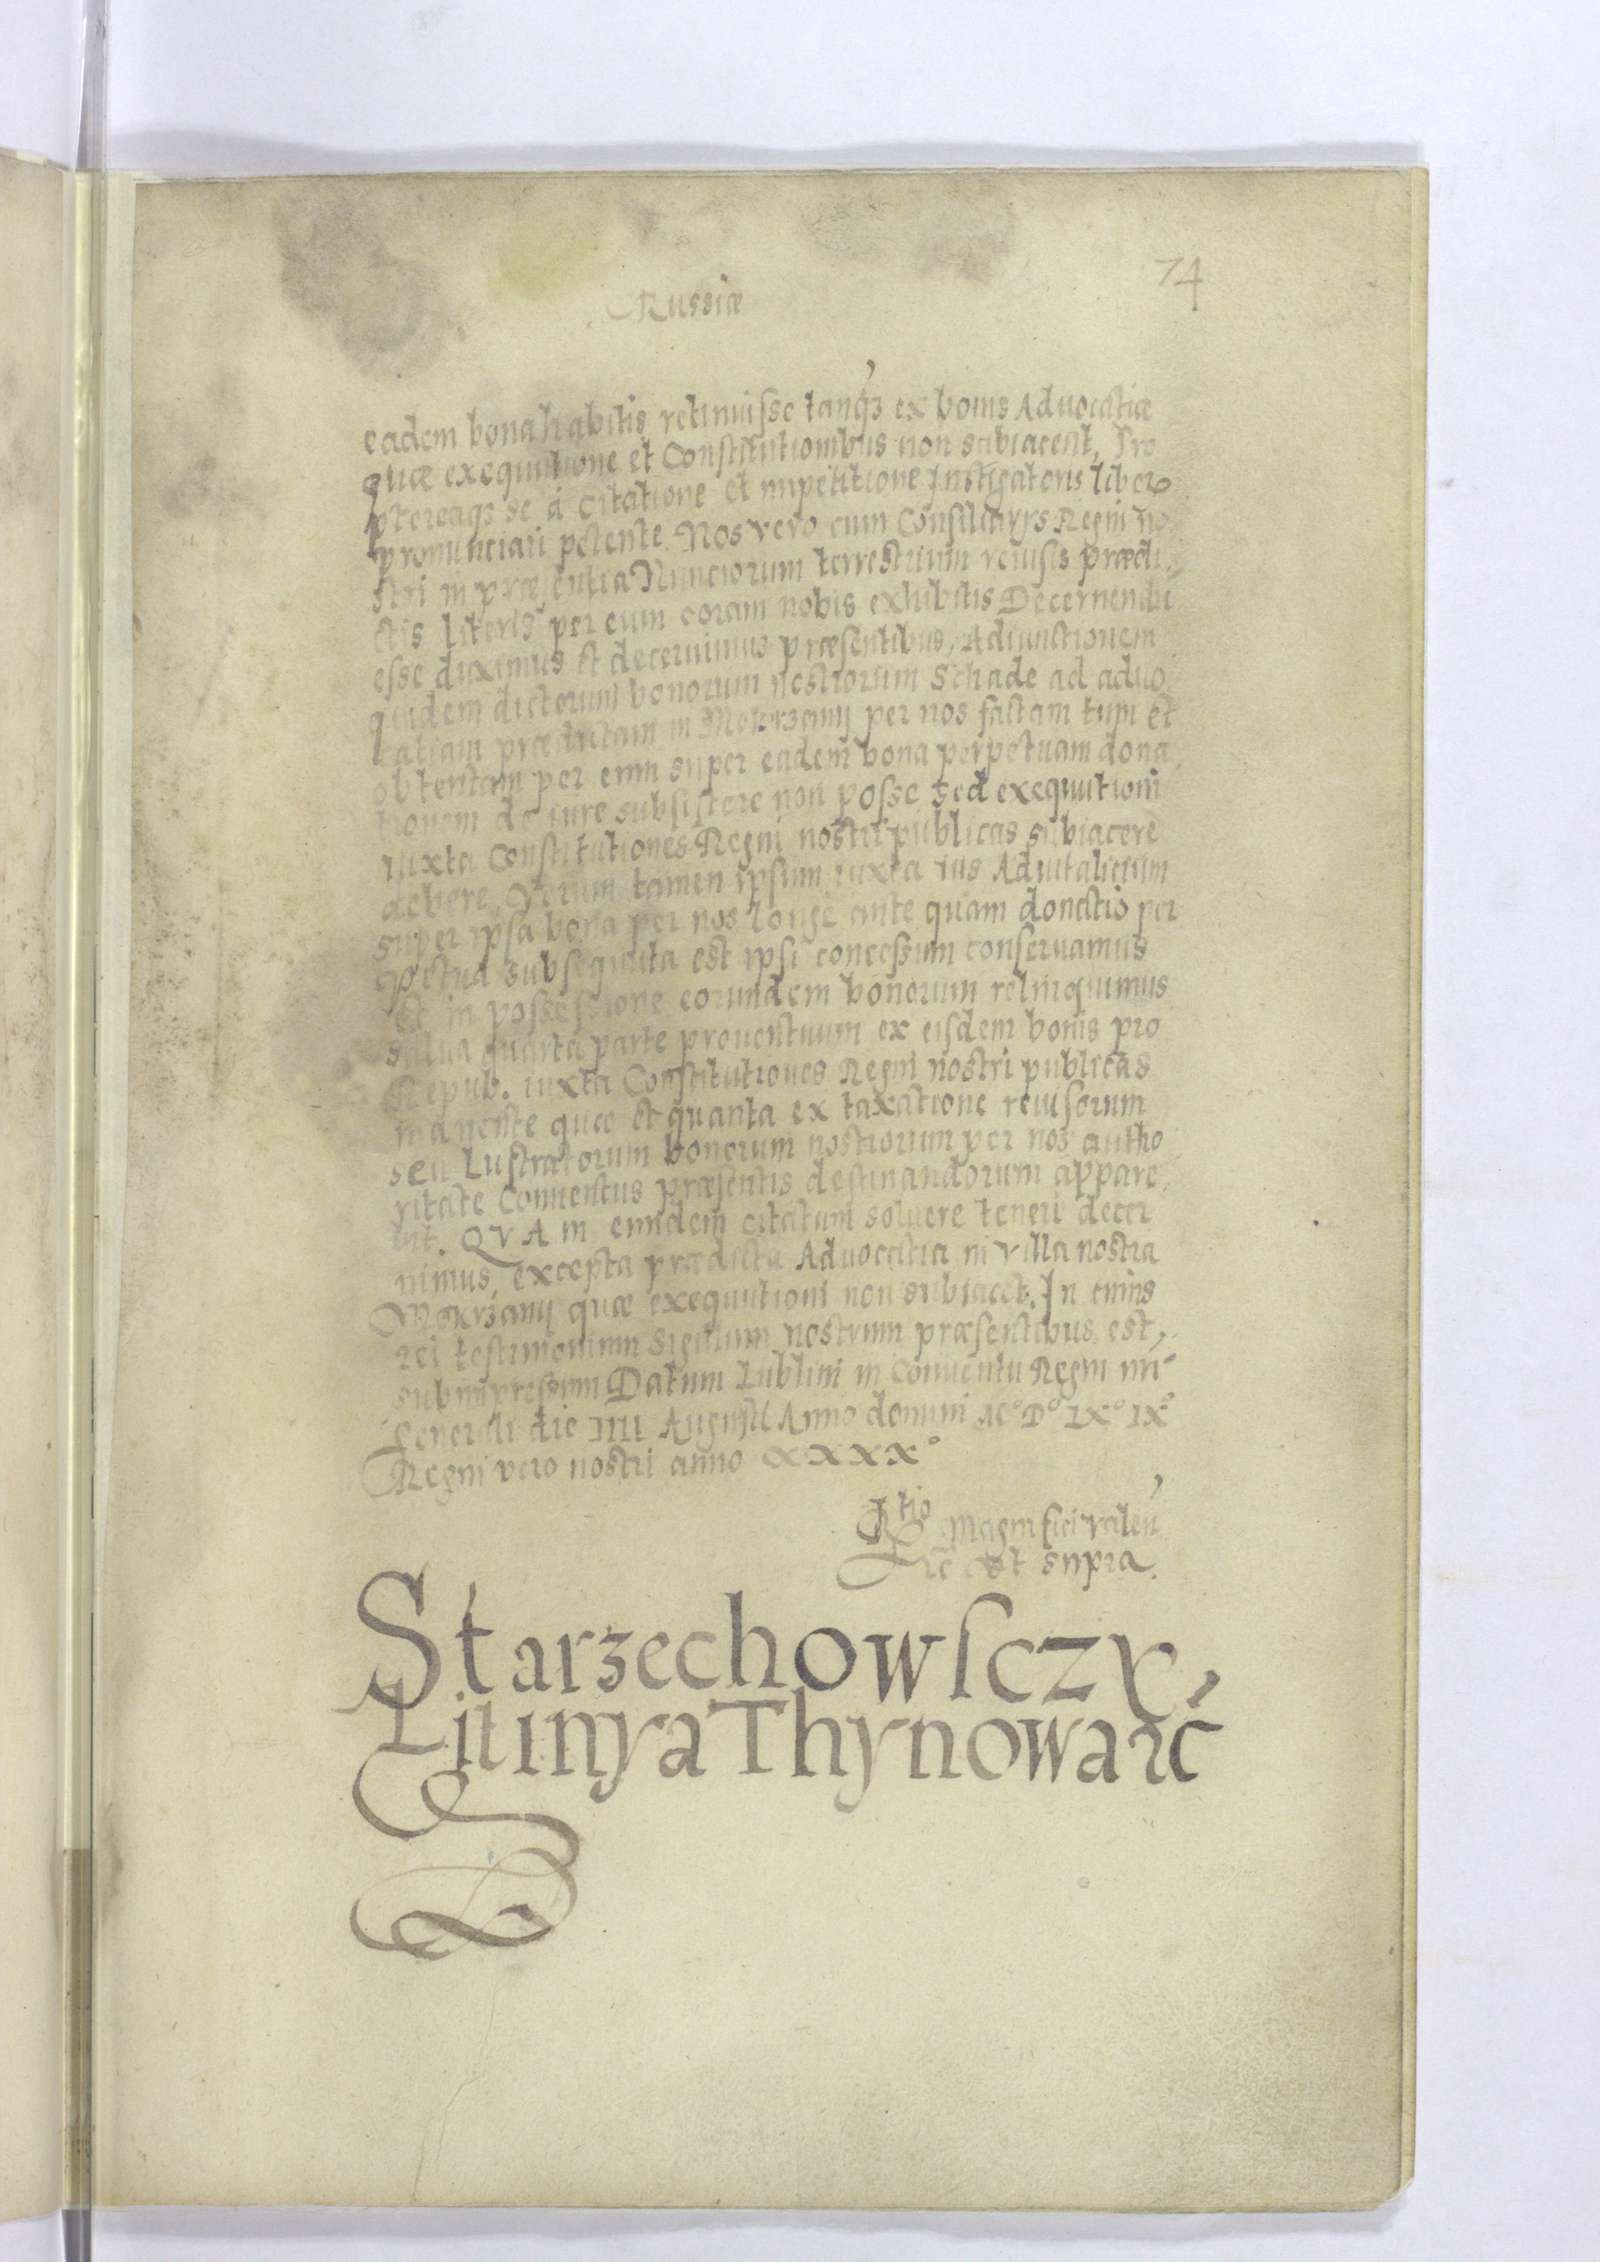 74
Russiæ
eadem bona habitis retinuisse tanq3 ex bonis Aduocatiæ
quæ exequutione et Constitutionibus non subiacent, Pro
ptereaq3 se à citatione et impetitione Instigatoris liber
pronunciari petente. Nos vero cum Consiliarijs Regni no
stri in præsentia Nunciorum terrestrium reuisis prædi
ctis literis per eum coram nobis exhibitis Decernendu
esse duximus et decernimus præsentibus, Adiunctionem
quidem dictorum bonorum nostrorum Schade ad aduo
catiam prædictam in Mokrzanij per nos factam tum et
obtentam per eum super eadem bona perpetuam dona
tionem de iure subsistere non posse sed exequutioni
iuxta Constitutiones Regni nostri publicas subiacere
debere. Verum tamen ipsum iuxta ius Aduitalicium
super ipsa bona per nos longe ante quam donatio per
petua subsequuta est ipsi concessum conseruamus
et in possessione eorundem bonorum relinquimus
salua quarta parte prouentuum ex eisdem bonis pro
Repub. iuxta Constitutiones Regni nostri publicas
manente quæ et quanta ex taxatione reuisorum
seu Lustratorum bonorum nostrorum per nos autho
ritate Conuentus præsentis destinandorum appare
bit. QVAm eundem citatum soluere teneri decer
nimus, excepta prædicta Aduocatia in villa nostra
Mokrzanij quæ exequutioni non subiacet. In cuius
rei testimonium Sigillum nostrum præsentibus est
subimpressum Datum Lublini in Conuentu Regni nri
generali die IIII Augusti Anno domini Mº Dº LXº IXº
Regni vero nostri anno XXXXº
Rtio Magnifici valen
rc vt supra.
Starzechowsczy,
Litinya Thynowa rc